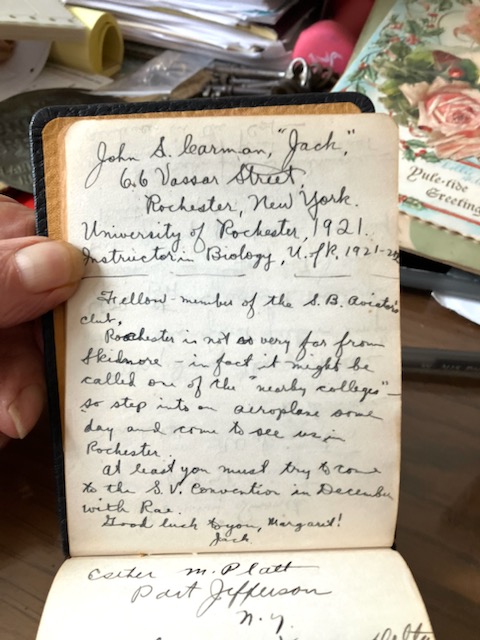 John S. Carman, "Jack,"
66 Vassar Street,
Rochester, New York.
University of Rochester, 1921.
Instructor in Biology, U. of R. 1921-22
Fellow-member of the S. B. Aviators
club,
Rochester is not so very far from
Skidmore - in fact it might be
called one of the "nearby colleges" -
so step into an aeroplane some
day and come to see us in
Rochester.
At least you must try to come
to the S.V. Convention in December
with Rae.
Good luck to you, Margaret!
Jack
Esther M. Platt
Port Jefferson
N.Y.
Yule-tide
Greeting